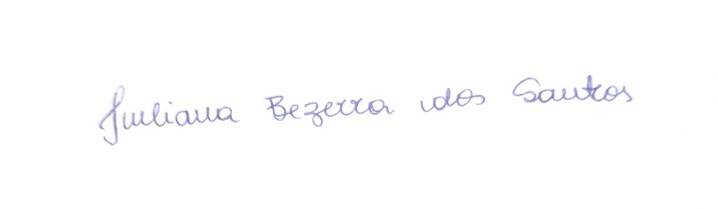 Juliana Bezerra dos Santos